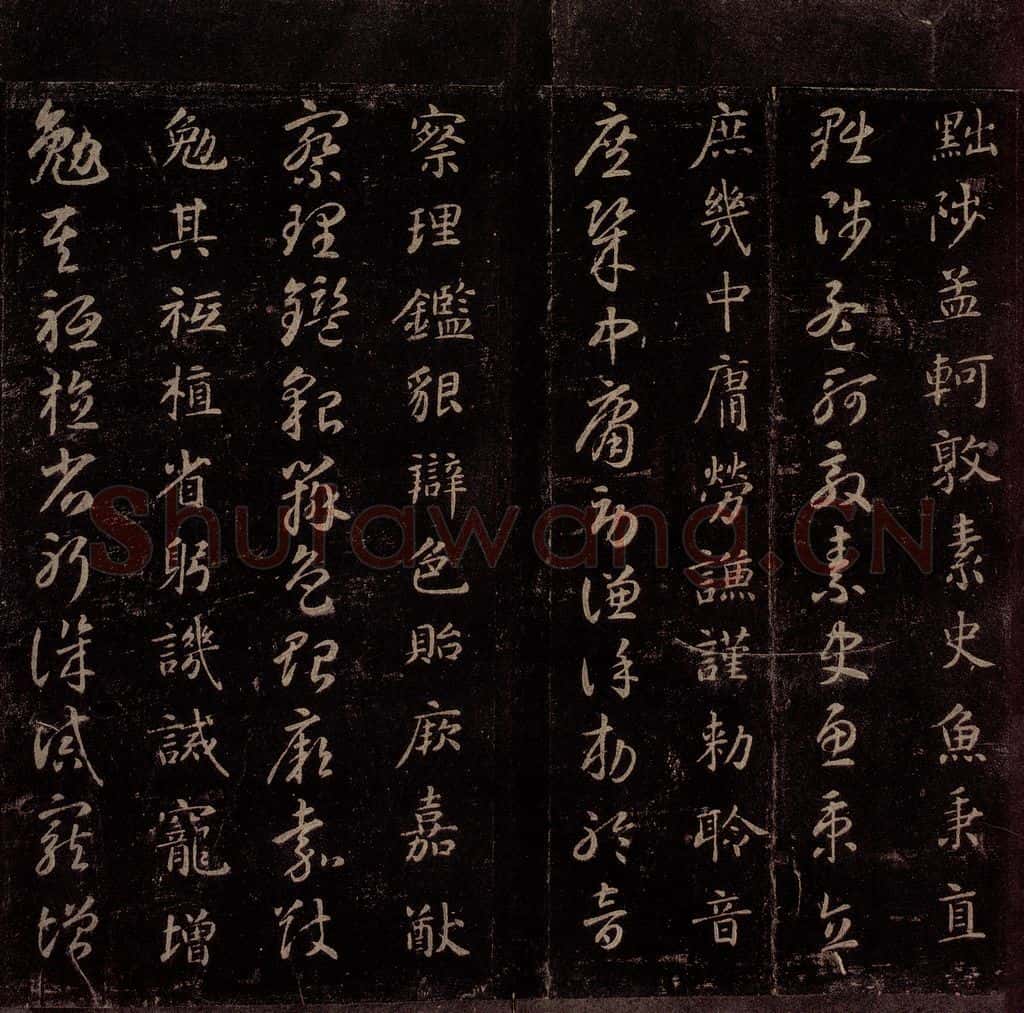 黜陟孟軻敦素史魚秉直
黜陟孟軻敦素史魚秉直
庶幾中庸勞謙謹勅聆音
庶幾中庸勞謙謹勅聆音
察理鑑貌辯色貽厥嘉猷
察理鑑貌辯色貽厥嘉猷
勉其祗植省躬譏誡寵增
勉其祗植省躬譏誡寵增
Shufawang.CN